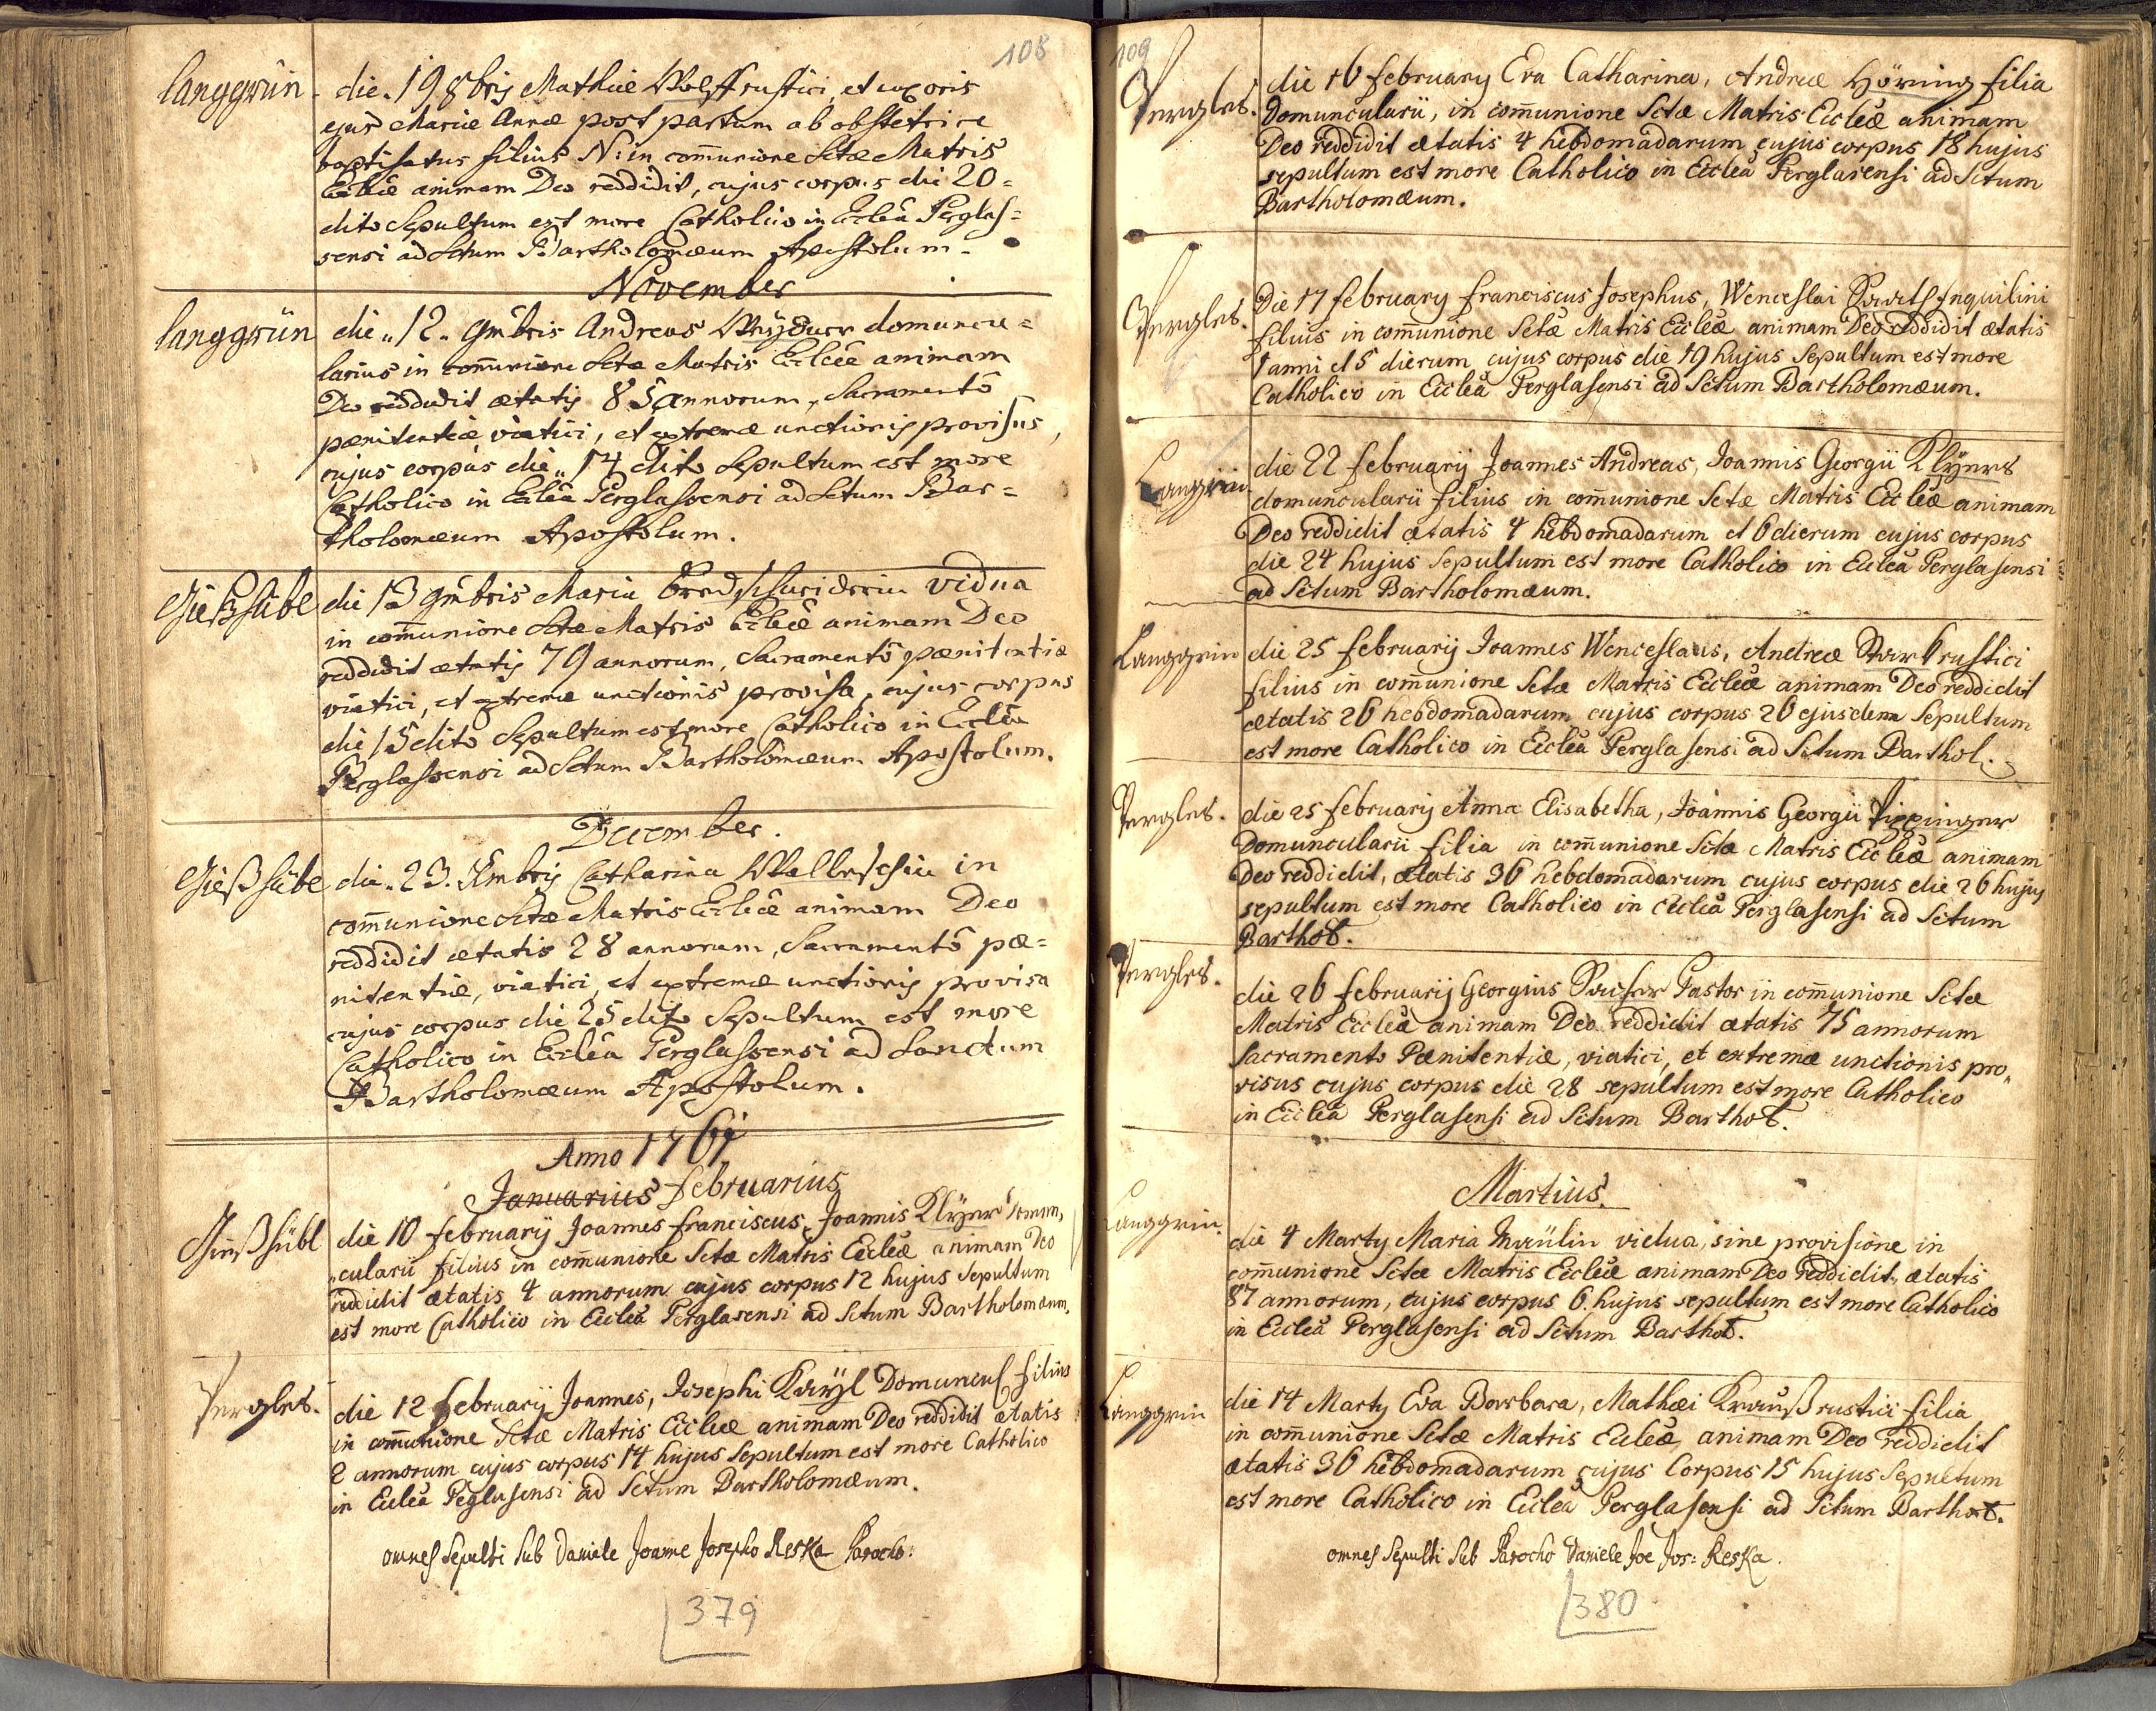 108
langgrün. die. 19 8bris Mathiæ Wolff rustici, et uxoris
ejus Mariæ Annæ post partum ab obstetrice
baptisatus filius N: in com̄unione Sctæ Matris
Eccleæ animam Deo reddidit, cujus corpus die 20=
dito Sepultum est more Catholico in Ecclea Perglas=
sensi ad Sctum Bartholomæum Apostolum.
November
langgrün die „12„ 9mbris Andreas domuncu=
larius in com̄unione Sctæ Matris Eccleæ animam
Deo reddidit ætatis 85 annorum, Sacramentô
pœnitentiæ viatici, et extremæ unctionis provisus,
cujus corpus die „14 dito Sepultum est more
Catholico in Ecclea Perglassensi ad Sctum Bar=
tholomæum Apostolum.
Gießhübl die 13 9mbris Maria vidua
in com̄unione Sctæ Matris Eccleæ animam Deo
reddidit ætatis 79 annorum, Sacramentô pœnitentiæ
viatici, et extremæ unctionis provisa, cujus corpus
die 15 dito Sepultum est more Catholico in Ecclea
Perglassensi ad Sctum Bartholomæum Apostolum.
December.
Gießhübl die „23. Xmbris Catharina in
com̄unione Sctæ Matris Eccleæ animam Deo
reddidit ætatis 28 annorum, Sacramentô pœ=
nitentiæ, viatici, et extremæ unctionis provisa
cujus corpus die 25 dito Sepultum est more
Catholico in Ecclea Perglassensi ad Sanctum
Bartholomæum Apostolum.
Anno 1761
Januarius februarius
Gießhübl die 10 februarij Joannes franciscus, Joannis Klÿner Domun„
„cularii filius in com̄unione Sctæ Matris Eccleæ animam Deo
reddidit ætatis 4 annorum cujus corpus 12 hujus sepultum
est more Catholico in Ecclea Perglasensi ad Sctum Bartholomæum.
Pergles. die 12 februarij Joannes, Josephi Domuncul filius
in com̄unione Sctæ Matris Eccleæ animam Deo reddidit ætatis
2 annorum cujus corpus 14 hujus Sepultum est more Catholico
in Ecclea Peglasensi ad Sctum Bartholomæum.
omnes Sepulti Sub Daniele Joanne Josepho Reska Parocho:
379
109
Pergles. die 16 february Eva Catharina, Andreæ Höring filia
Domuncularii, in com̄unione Sctæ Matris Eccleæ animam
Deo reddidit ætatis 4 hebdomadarum cujus corpus 18 hujus
sepultum est more Catholico in Ecclea Perglasensi ad Sctum
Bartholomæum.
Pergles. Die 17 february franciscus Josephus, Wenceslai Inquilini
filius in com̄unione Sctæ Matris Eccleæ animam Deo reddidit ætatis
1 anni et 5 dierum cujus corpus die 19 hujus Sepultum est more
Catholico in Ecclea Perglasensi ad Sctum Bartholomæum.
Langgrün die 22 februarij Joannes Andreas, Joannis Georgii Klÿners
domuncularii filius in com̄unione Sctæ Matris Eccleæ animam
Deo reddidit ætatis 4 hebdomadarum et 6 dierum cujus corpus
die 24 hujus Sepultum est more Catholico in Ecclea Perglasensi
ad Sctum Bartholomæum.
Langgrin die 25 februarij Joannes Wenceslaus, Andreæ rustici
filius in com̄unione Sctæ Matris Eccleæ animam Deo reddidit
ætatis 26 hebdomadarum cujus corpus 26 ejusdem Sepultum
est more Catholico in Ecclea Perglasensi ad Sctum Barthol.
Pergles. die 25 februarij Anna Elisabetha, Joannis Georgii
Domuncularii filia in com̄unione Sctæ Matris Eccleæ animam
Deo reddidit, ætatis 36 hebdomadarum cujus corpus die 26 hujus
sepultum est more Catholico in Ecclea Perglasensi ad Sctum
Barthol.
Pergles. die 26 februarij Georgius Pastor in com̄unione Sctæ
Matris Eccleæ animam Deo reddidit ætatis 75 annorum
Sacramento Pœnitentiæ, viatici, et extremæ unctionis pro„
visus cujus corpus die 28 sepultum est more Catholico
in Ecclea Perglasensi ad Sctum Barthol.
Martius.
Langgrin. die 4 Marty Maria vidua, sine provisione in
com̄unione Sctæ Matris Eccleæ animam Deo reddidit, ætatis
87 annorum, cujus corpus 6. hujus sepultum est more Catholico
in Ecclea Perglasensi ad Sctum Barthol.
Langgrin die 14 Marty Eva Barbara, Mathæi Krauß rustici filia
in com̄unione Sctæ Matris Eccleæ, animam Deo reddidit
ætatis 36 hebdomadarum cujus Corpus 15 hujus Sepultum
est more Catholico in Ecclea Perglasensi ad Sctum Barthol.
omnes Sepulti Sub Parocho Daniele Joe Jos: Reska.
380